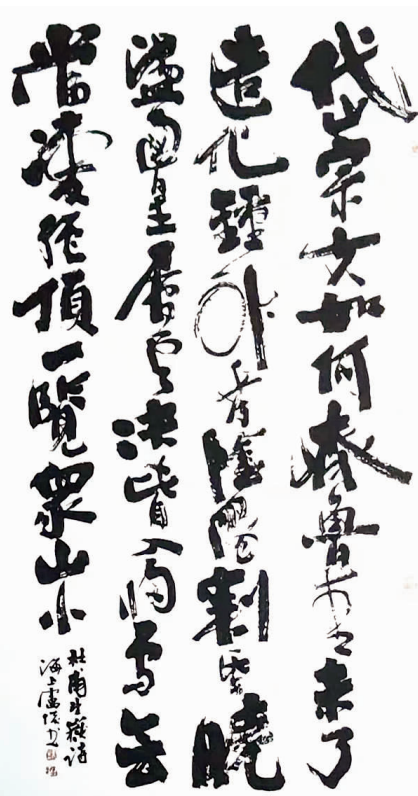 岱宗夫如何齊魯青未了
造化鍾神秀陰陽割昏曉
盪胸生層雲決眥入歸鳥會
當凌絕頂一覽眾山小
杜甫望嶽詩
海上盧書